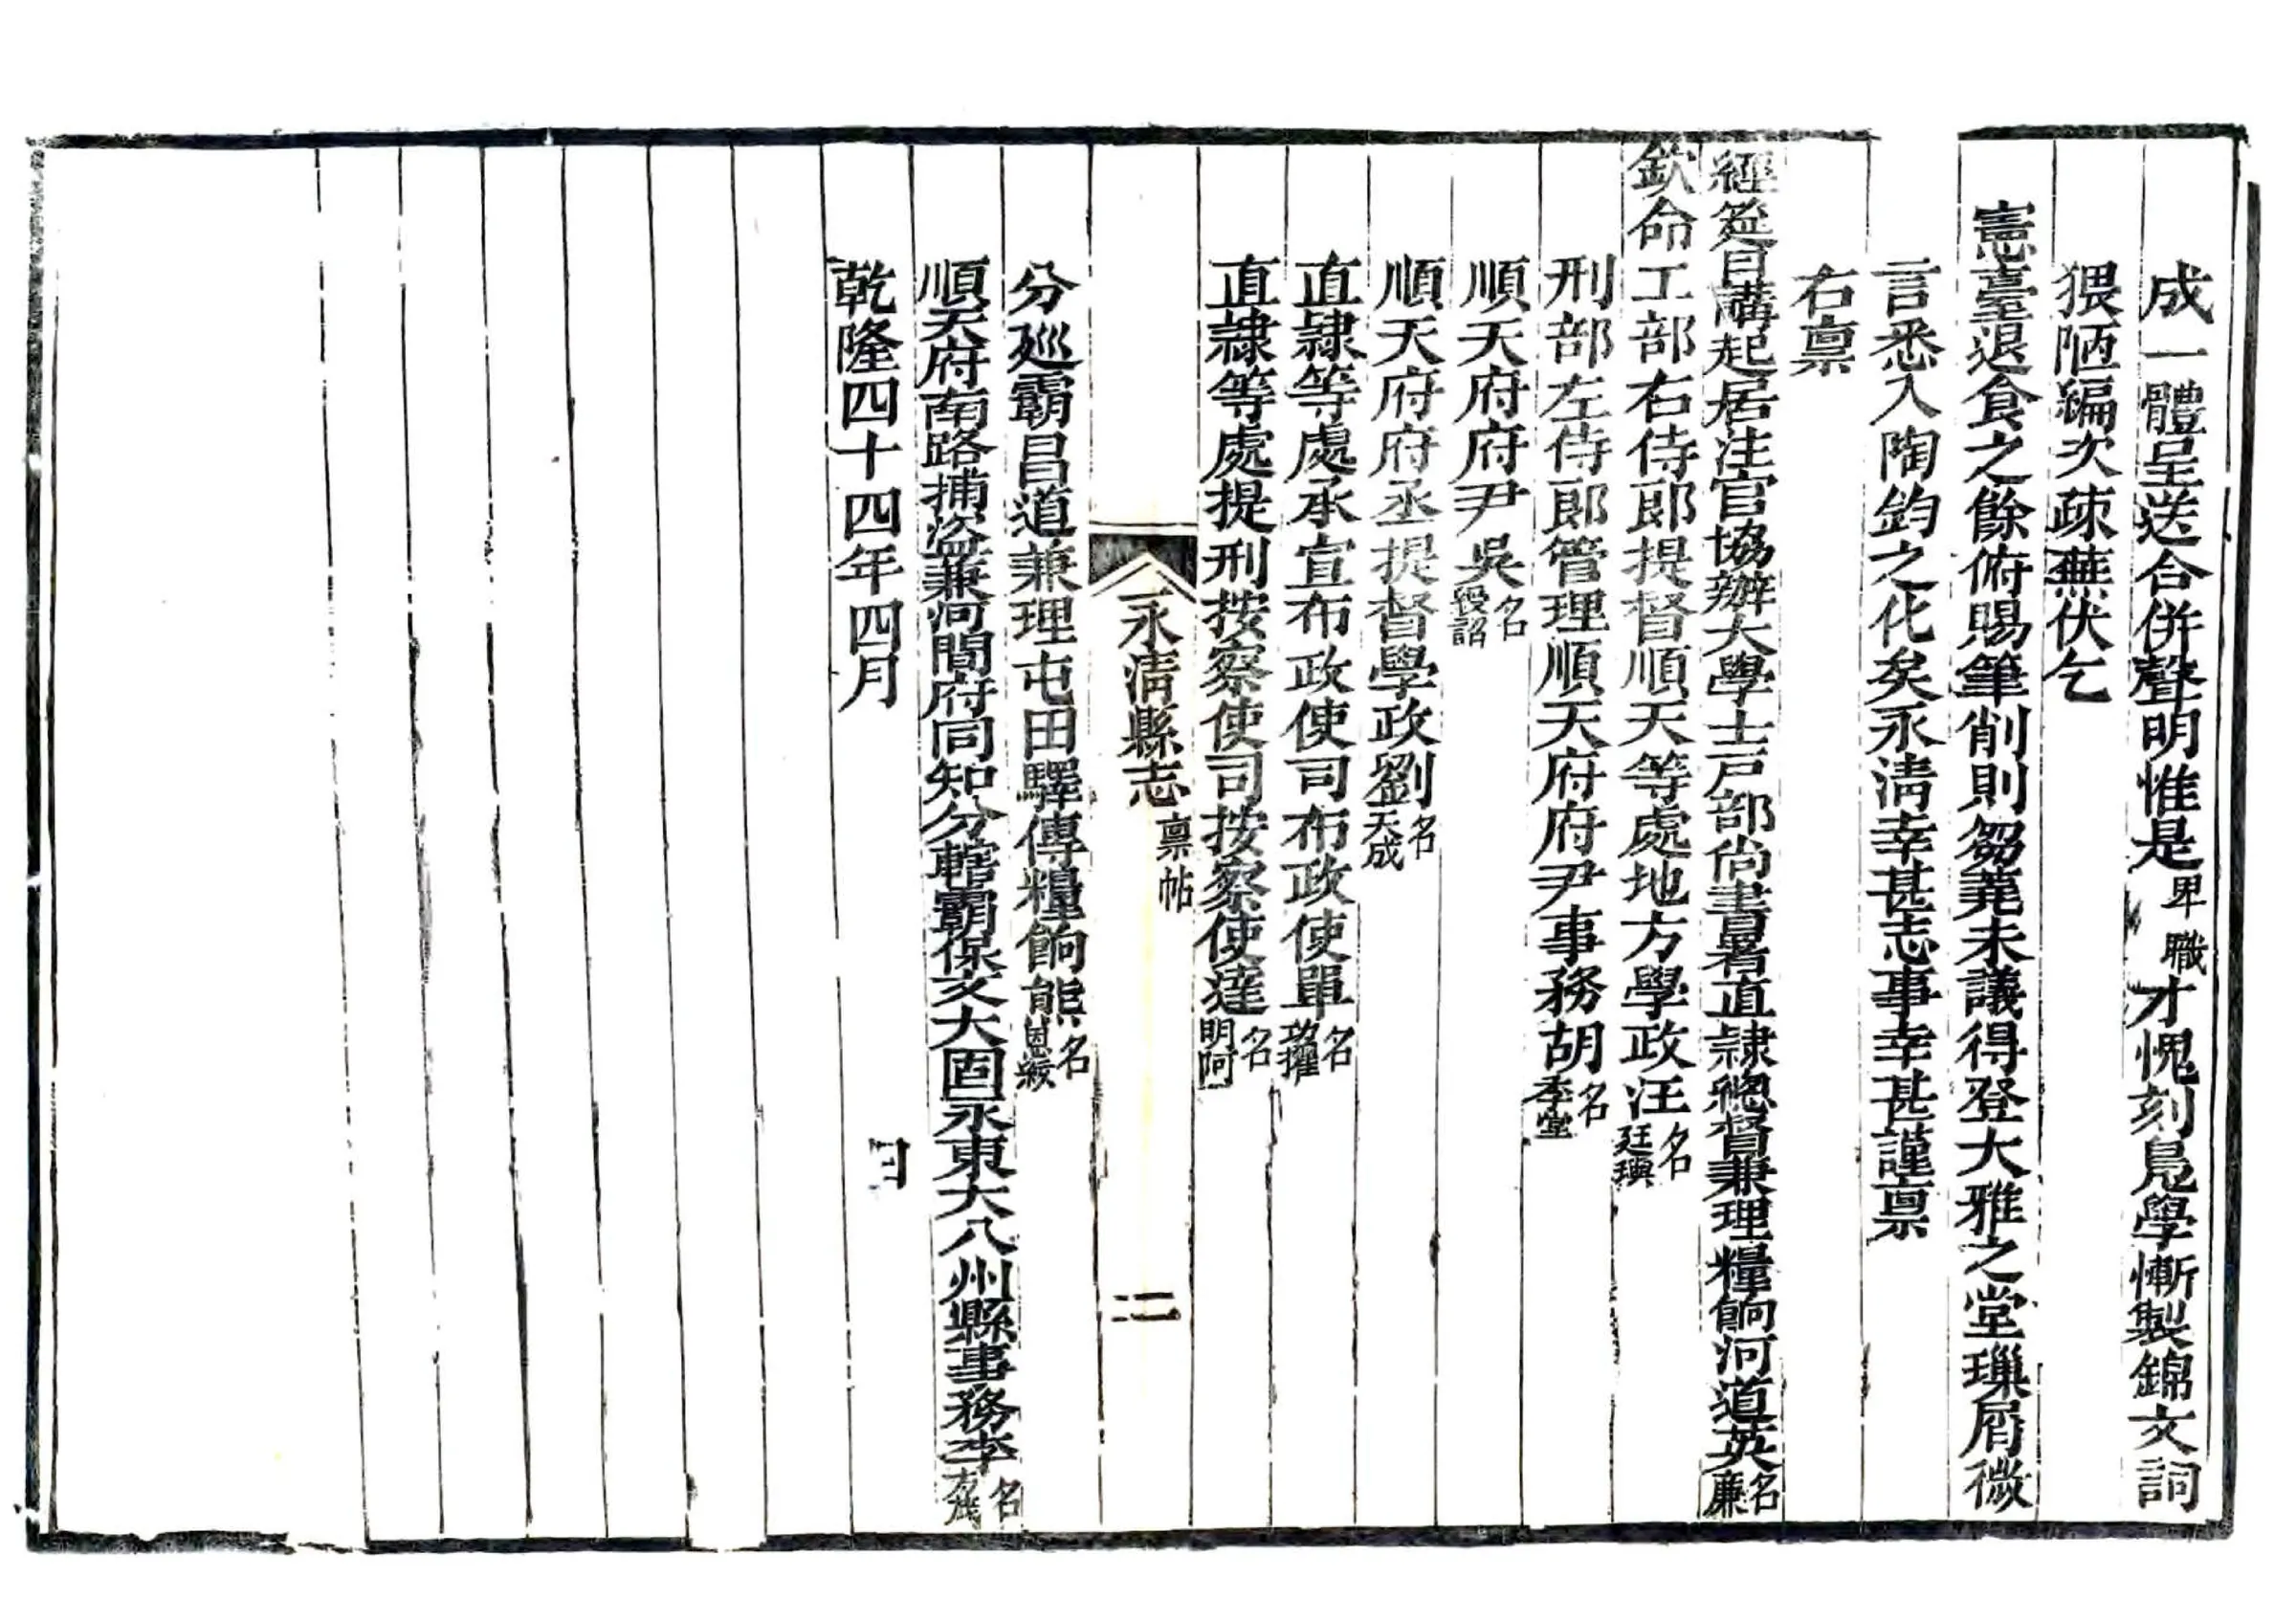 成一體呈送合併聲明惟是卑職才愧刻鳧學慚製錦文詞
猥陋編次疎蕪伏乞
憲臺退食之餘俯賜筆削則芻蕘未議得登大雅之堂璅屑微
言悉入陶鈞之化矣永淸幸甚志事幸甚謹禀
右禀
經筵日講起居注官協辦大學士戸部尙書署直隷總督兼理糧餉河道英名廉
欽命工部右侍郎提督順天等處地方學政汪名廷璵
刑部左侍郎管理順天府府尹事務胡名季堂
順天府府尹吳名綬詔
順天府府丞提督學政劉名天成
直隷等處承宣布政使司布政使單名功擢
直隷等處提刑按察使司按察使達名明阿
永淸縣志 禀帖 二
分廵霸昌道兼理屯田驛傳糧餉熊名恩紱
順天府南路捕盜兼河間府同知分轄霸保文大固永東大八州縣事務李名
乾隆四十四年四月 日